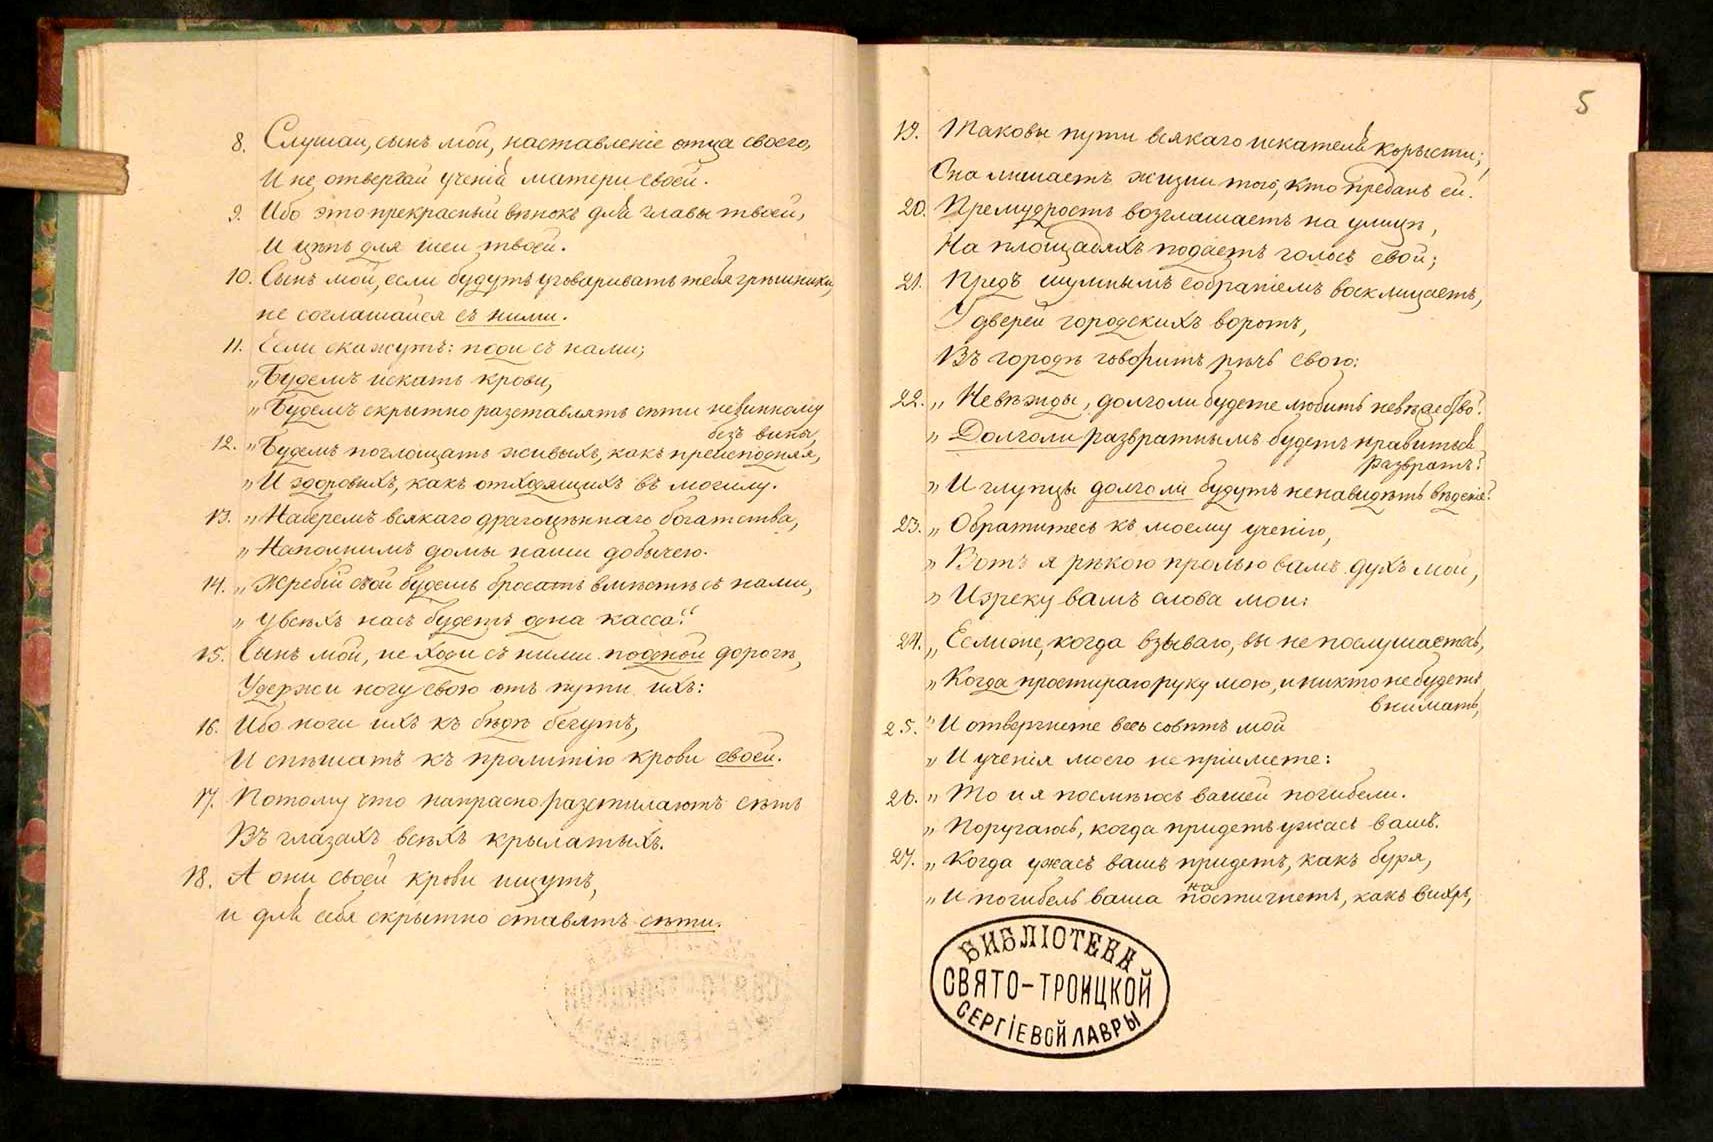 8. Слушай, сынъ мой, наставленіе отца своего,
И не отвергай ученій матери своей.
9. Ибо это прекрасный вѣнокъ для главы твоей,
И цѣпь для шеи твоей.
10. Сынъ мой, если будутъ уговаривать тебя грѣшники,
не соглашайся съ ними.
11. Если скажутъ: поди съ нами;
„Будемъ искать крови,
„Будемъ скрытно разставлять сѣти невинному
безъ вины,
12. „Будемъ поглощать живыхъ, какъ преисподняя,
„И здоровыхъ, какъ отходящихъ въ могилу.
13. „Наберемъ всякаго драгоцѣннаго богатства,
„Наполнимъ домы наши добычею.
14. „Жребій свой будешь бросать вмѣстѣ съ нами,
„у всѣхъ насъ будетъ одна касса.“
15. Сынъ мой, не ходи съ ними по одной дорогѣ,
Удержи ногу свою отъ пути ихъ:
16. Ибо ноги ихъ къ бѣдѣ бегутъ,
И спѣшатъ къ пролитію крови своей.
17. Потому что напрасно разстилаютъ сѣть
Въ глазахъ всѣхъ крылатыхъ.
18. А они своей крови ищутъ,
и для себя скрытно ставятъ сѣти.
5
19. Таковы пути всякаго искателя корысти;
Она лишаетъ жизни того, кто преданъ ей.
20. Премудрость возглашаетъ на улицѣ,
На площадяхъ подаетъ голосъ свой;
21. Предъ шумнымъ собраніемъ восклицаетъ,
У дверей городскихъ воротъ,
Въ городѣ говоритъ рѣчь свою:
22. „Невѣжды, долго ли будете любить невѣжество?
„Долго ли развратнымъ будетъ нравиться
развратъ?
„И глупцы долго ли будутъ ненавидѣть вѣденіе?
23. „Обратитесь къ моему ученію,
„Вотъ я рѣкою пролью вамъ духъ мой,
„Изреку вамъ слова мои:
24. „Если же, когда взываю, вы не послушаетесь,
„Когда простираю руку мою, и никто не будетъ
внимать,
25. „И отвергнете весь совѣтъ мой
„И ученія моего не пріимете:
26. „То и я посмѣюсь вашей погибели.
„Поругаюсь, когда придетъ ужасъ вашъ.
27. „Когда ужасъ вашъ придетъ, какъ буря,
на
„И погибель ваша постигнетъ, какъ вихрь,
БИБЛІОТЕКА
СВЯТО-ТРОИЦКОЙ
СЕРГІЕВОЙ ЛАВРЫ